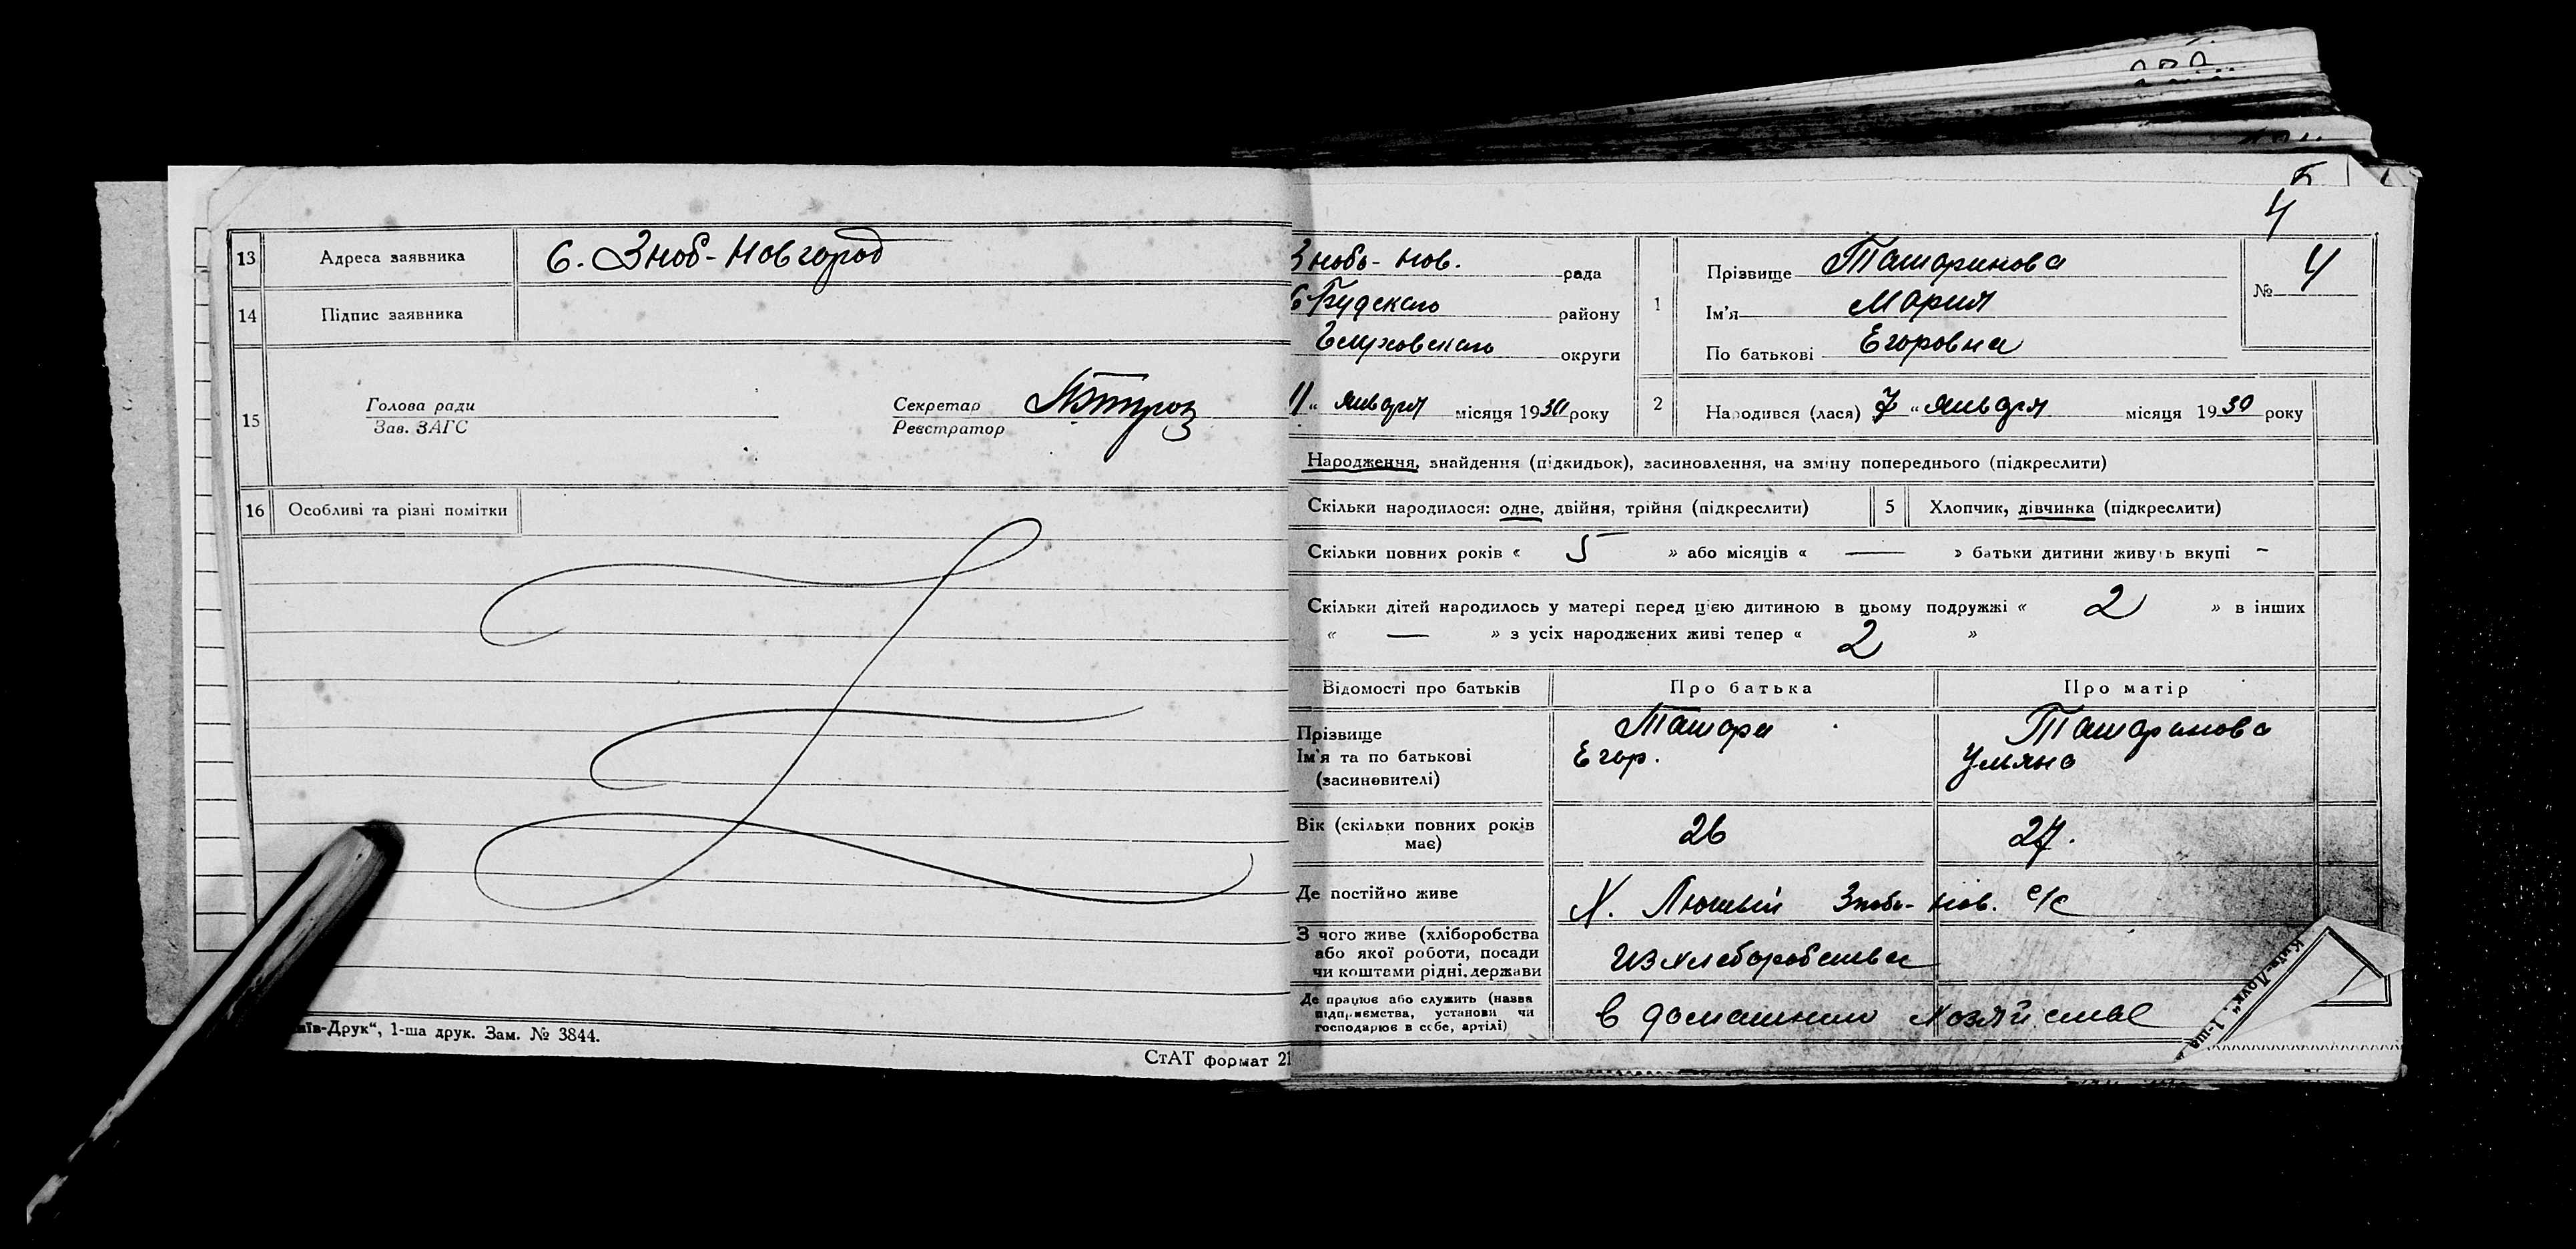 13 Адреса заявника С. Зноб-Новгород
14 Підпис заявника
15 Голова ради Секретар
Зав. ЗАГС Реєстратор
16 Особливі та різні помітки
їв-Друк“, 1-ша друк. Зам. № 3844.
СтАТ формат 21
4
Знобь-Нов. рада
С Будскаго району
Глуховскаго округи
11 “ января місяця 1930 року
1 Прізвище Ташаринова
Ім'я Мария
По батькові Егоровна
№ 4
2 Народився (лася) 7 “ января місяця 1930 року
Народження, знайдення (підкидьок), засиновлення, на зміну попереднього (підкреслити)
Скільки народилося: одне, двійня, трійня (підкреслити) 5 Хлопчик, дівчинка (підкреслити)
Скільки повних років « 5 » або місяців « — » батьки дитини живуть вкупі -
Скільки дітей народилось у матері перед цією дитиною в цьому подружжі « 2 » в інших
« — » з усіх народжених живі тепер « 2 »
Відомості про батьків Про батька Про матір
Прізвище Ташара Ташаринова
Ім'я та по батькові Егор. Ульяна
(засиновителі)
Вік (скільки повних років 26 27.
має)
Де постійно живе Х. Знобь-Нов. с/с
З чого живе (хліборобства
або якої роботи, посади из хлеборобства
чи коштами рідні, держави
Де працює або служить (назва
підприємства, установи чи в домашнем хозяйстве
господарює в себе, артілі)
Київ-Друк“, 1-ша